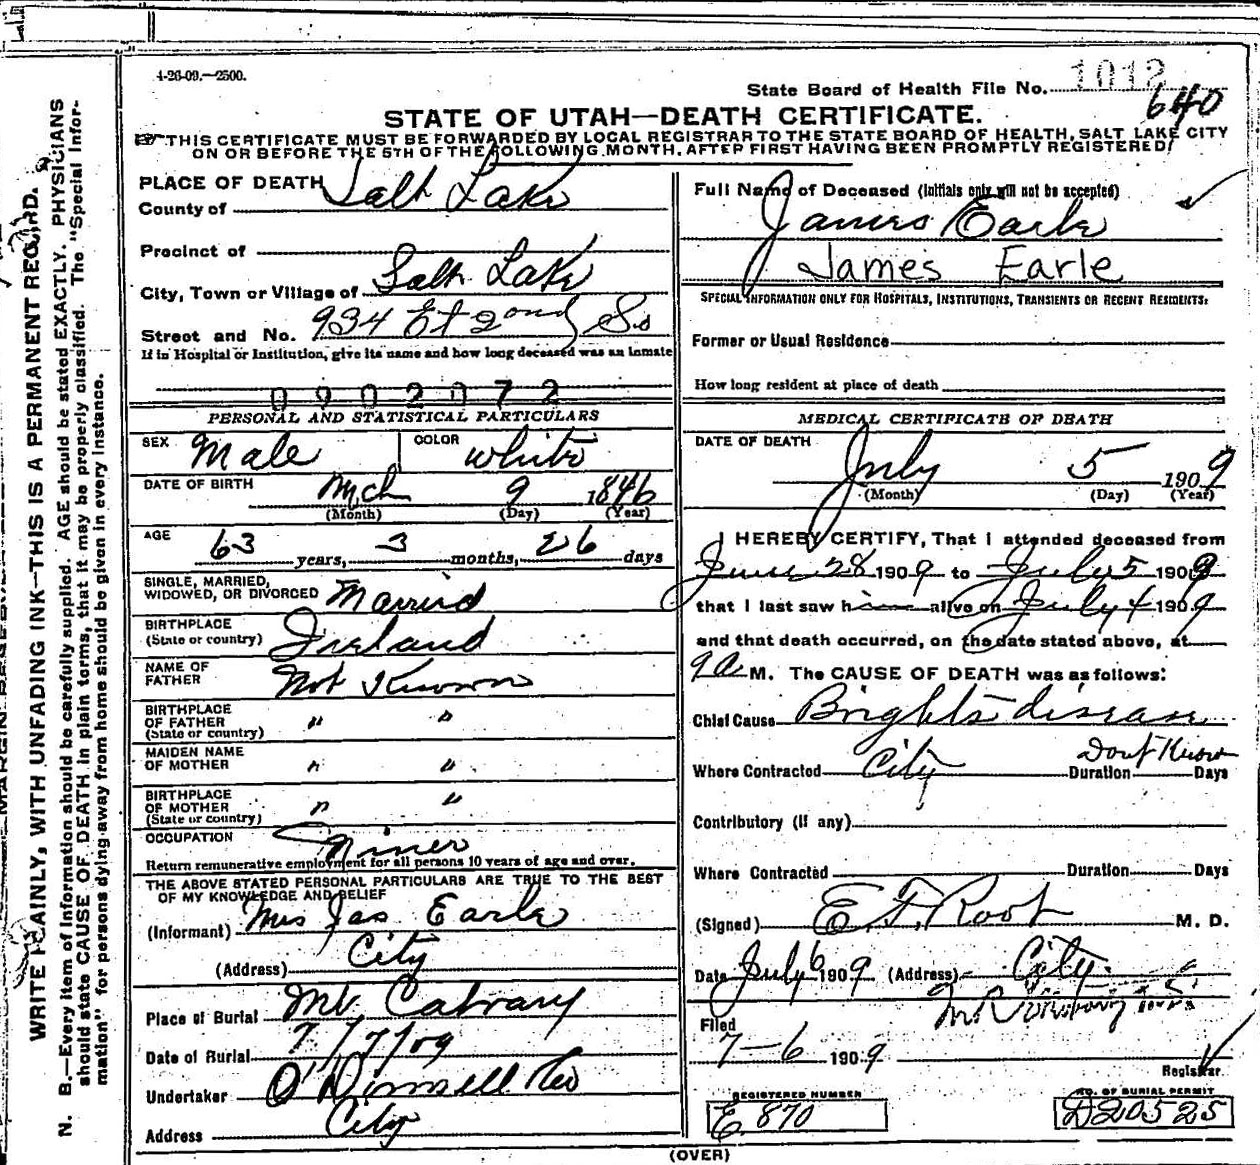 4-26-09.—2500.
State Board of Health File No. 1012
640
STATE OF UTAH—DEATH CERTIFICATE.
THIS CERTIFICATE MUST BE FORWARDED BY LOCAL REGISTRAR TO THE STATE BOARD OF HEALTH, SALT LAKE CITY
ON OR BEFORE THE 5TH OF THE FOLLOWING MONTH, AFTER FIRST HAVING BEEN PROMPTLY REGISTERED
WRITE PLAINLY, WITH UNFADING INK—THIS IS A PERMANENT RECORD.
N. B.—Every item of information should be carefully supplied. AGE should be stated EXACTLY. PHYSICIANS
should state CAUSE OF DEATH in plain terms, that it may be properly classified. The "Special Infor-
mation" for persons dying away from home should be given in every instance.
PLACE OF DEATH
County of Salt Lake
Precinct of
City, Town or Village of Salt Lake
Street and No. 934 Et 2ond So
If in Hospital or Institution, give its name and how long deceased was an inmate
0902072
PERSONAL AND STATISTICAL PARTICULARS
SEX Male COLOR White
DATE OF BIRTH Mch 9 1846
(Month) (Day) (Year)
AGE 63 years, 3 months, 26 days
SINGLE, MARRIED,
WIDOWED, OR DIVORCED Married
BIRTHPLACE
(State or country) Ireland
NAME OF
FATHER Not Known
BIRTHPLACE
OF FATHER " "
(State or country)
MAIDEN NAME
OF MOTHER " "
BIRTHPLACE
OF MOTHER " "
(State or country)
OCCUPATION Miner
Return remunerative employment for all persons 10 years of age and over.
THE ABOVE STATED PERSONAL PARTICULARS ARE TRUE TO THE BEST
OF MY KNOWLEDGE AND BELIEF
(Informant) Mrs Jas Earle
(Address) City
Place of Burial Mt. Calvary
Date of Burial 7/7/09
Undertaker O'Donnell Co
Address City
Full Name of Deceased (Initials only will not be accepted)
James Earle
James Earle
SPECIAL INFORMATION ONLY FOR HOSPITALS, INSTITUTIONS, TRANSIENTS OR RECENT RESIDENTS:
Former or Usual Residence
How long resident at place of death
MEDICAL CERTIFICATE OF DEATH
DATE OF DEATH
July 5 1909
(Month) (Day) (Year)
I HEREBY CERTIFY, That I attended deceased from
June 28 1909 to July 5 1909
that I last saw him alive on July 4 1909
and that death occurred, on the date stated above, at
9 a M. The CAUSE OF DEATH was as follows:
Chief Cause Brights disease
Where Contracted City Duration Dont Know Days
Contributory (if any)
Where Contracted Duration Days
(Signed) E. F. Root M. D.
Date July 6 1909 (Address) City
Filed
7-6 1909
Registrar
REGISTERED NUMBER
E 870
NO. OF BURIAL PERMIT
D20525
(OVER)